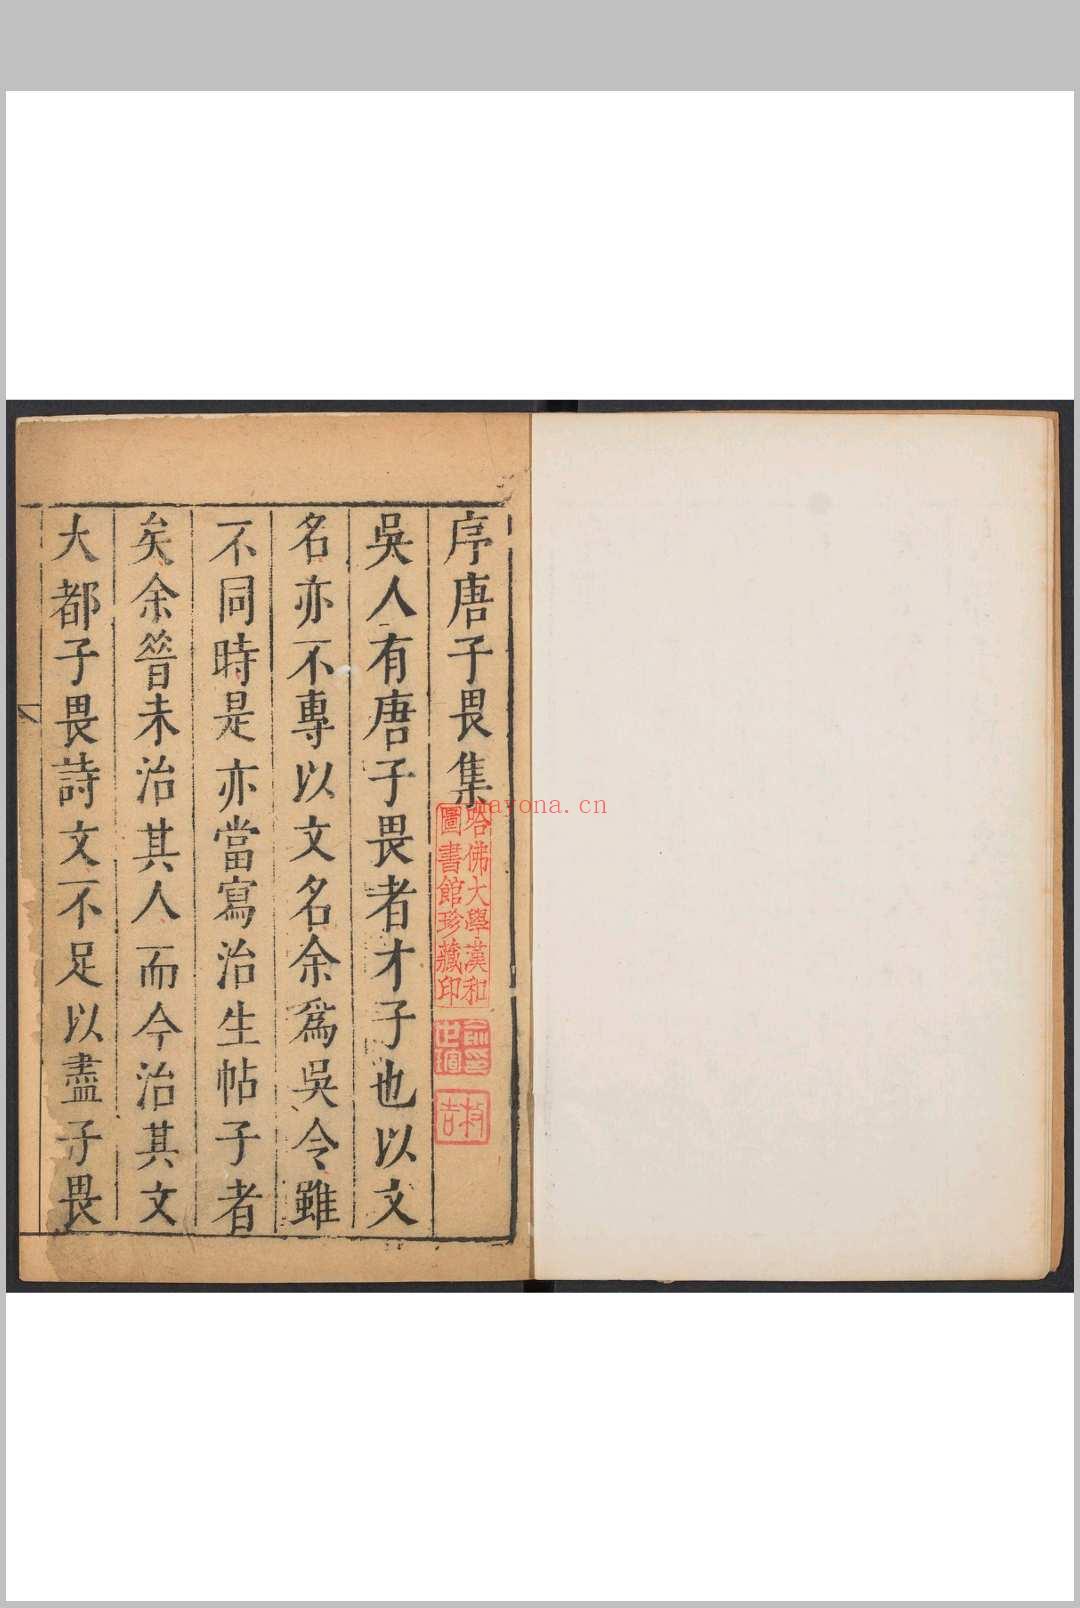 序唐子畏集
吳人有唐子畏者才子也以文
名亦不專以文名余爲吳令雖
不同時是亦當寫治生帖子者
矣余昝未治其人而今治其文
大都子畏詩文不足以盡子畏
哈佛大學漢和
圖書館珍藏印
ayona.cn